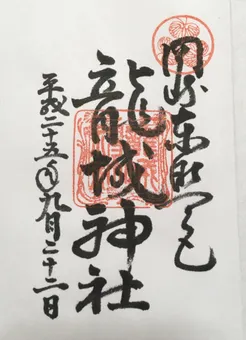 岡崎東照宮
龍城神社
平成二十五年九月二十二日